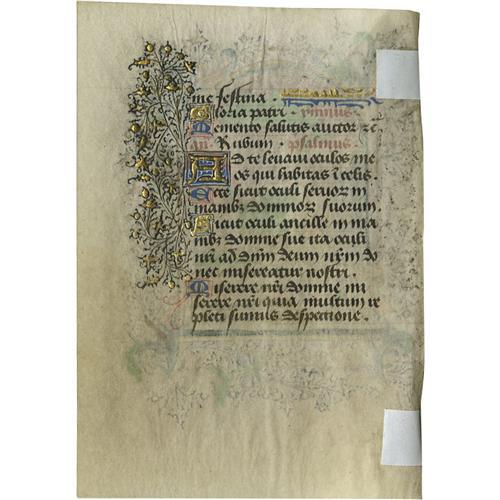 me festina.
Gloria patri. ymnus
Memento salutis auctor zc̄
an̄. Rubum. psalmus.
Ad te levavi oculos me
os qui habitas ī celis.
Ecce sicut oculi servoꝝ in
manibꝫ dominoꝝ suorum.
Sicut oculi ancille in ma
nibꝫ domine sue ita oculi
nr̄i ad dn̄m deum nr̄m do
nec misereatur nostri.
Miserere nr̄i domine mi
serere nr̄i quia multum re
pleti sumus despectione.